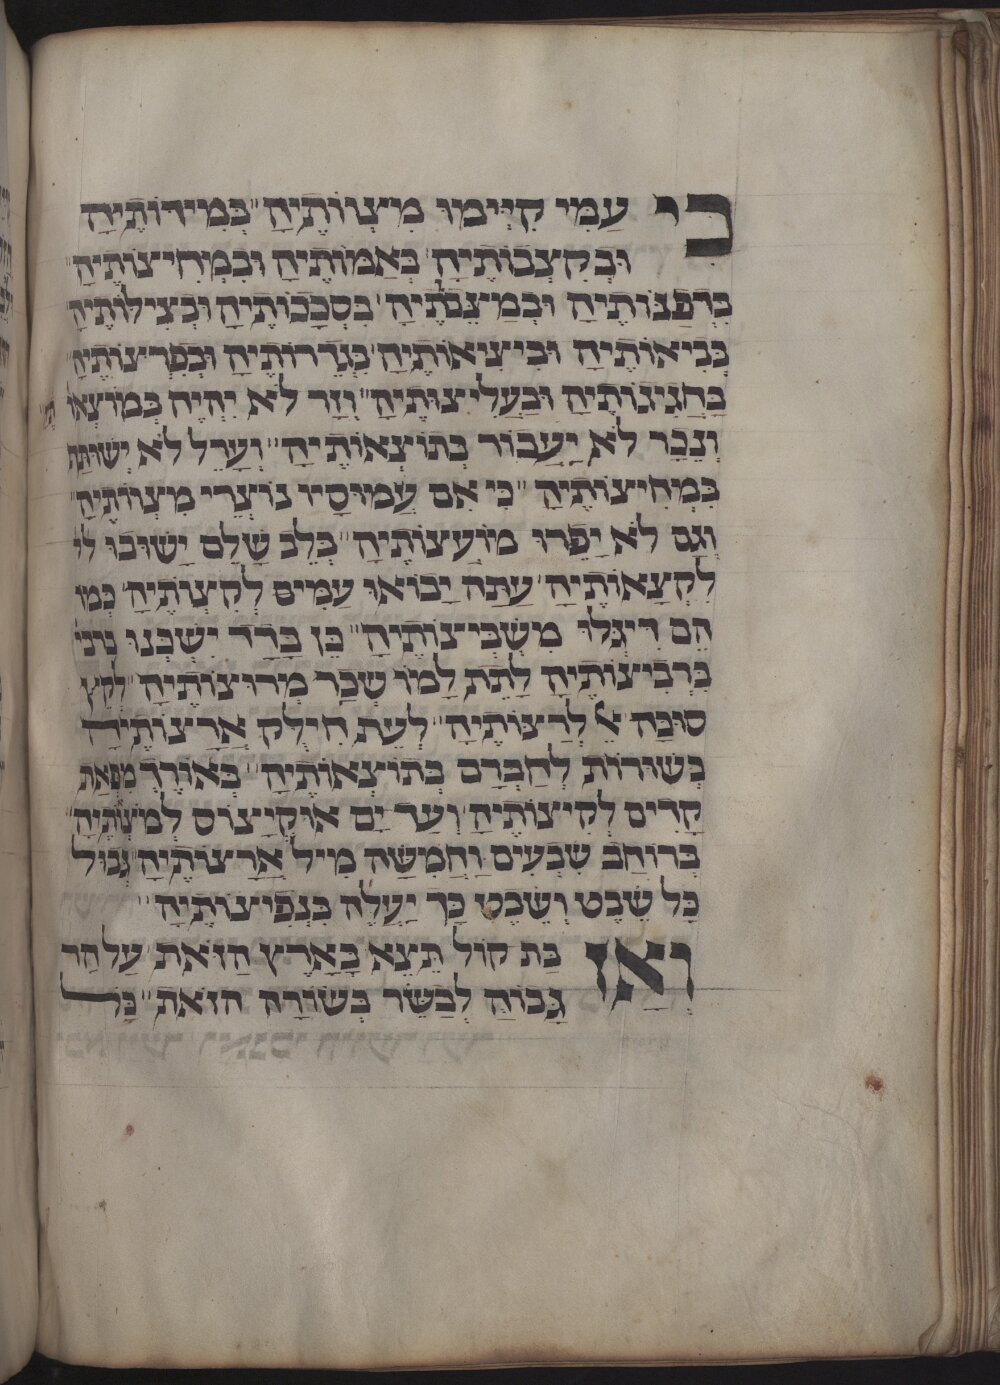 כי עַמִי קִיְימוּ מִצְוֹותֶיהָ בְּמִידוֹתֶיהָ
וּבְקִצְבוֹתֶיהָ בְּאַמוֹתֶיהָ וּבִמְחִיצוֹתֶיהָ
בְּרִפְנוֹתֶיהָ וּבְמַצֵבֹתֶיהָ בְּסִכְכוֹתֶיהָ וּבְצִילוֹתֶיהָ
בְּבִיאוֹתֶיהָ וּבִיצִיאוֹתֶיהָ בְּגְדֵרוֹתֶיהָ וּבְפִרְצוֹתֶיהָ
בַּחֲנִינוֹתֶיהָ וּבַעֲלִיצוּתֶיהָ וְזָר לֹא יִהְיֶה בְּמוֹצָאוֹ תי
וְנֵכָר לֹא יַעֲבוֹר בְּתוֹצְאוֹתֶיהָ וְעָרֵל לֹא יְשׁוּתַּת
בִּמְחִיצוֹתֶיהָ כִּי אִם עֲמוּסָיו נוֹצְרֵי מִצְוֹותֶיהָ
וְגַם לֹא יָפֵרוּ מוֹעֲצוֹתֶיהָ בְּלֵב שָׁלֵם יָשׁוּבוּ לוֹ
לִקְצָאוֹתֶיהָ עַתָּה יָבוֹאוּ עַמִּים לִקְצוֹתֶיהָ כְּמוֹ
הֵם דִיגְלוּ מִשְׁבְּיצוֹתֶיהָ כֵּן בְּדָד יִשְׁכְּנוּ נוֹיֵי
בִּרְבִיצוֹתֶיהָ לָתֵת לָמוֹ שְׂכַר מְרוּצוֹתֶיהָ לְקֵץ
סוּכָּה לְרִצוֹתֶיהָ לְעֵת חִילֵק אַרְצוֹתֶיהָ
בְּשׁוּרוֹת לְחַבְּרָם בְּתוֹצְאוֹתֶיהָ בְּאוֹרֶךְ מִפְּאַת
קָדִים לְקִיצוֹתֶיהָ וְעַד יַם אוּקְיָצוֹס לִמְצוֹתֶיהָ
בְּרוֹחַב שִׁבְעִים וַחֲמִשָּׁה מִיל אַרְצוֹתֶיהָ גְּבוּל
כָּל שֵׁבֶט וְשֵׁבֶט כָּךְ יַעֲלֶה בְּכַנְפֵי צוֹתֶיהָ
וְאָז בַּת קוֹל תֵּצֵא בָאָרֶץ הַזֹאת עַל הַר
גָּבוֹהַּ לְבַשֵּׂר בְּשׂוֹרָה הַזֹאת כָּל